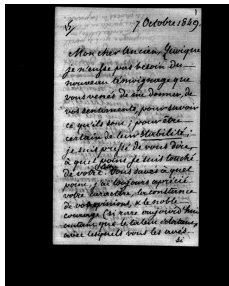 7 Octobre 1849.
Mon cher Lucien, Quoique
je n'eusse pas besoin du
nouveau témoignage que
vous venez de me donner, de
vos sentiments, pour savoir
ce qu'ils sont, pour être
certain de leur stabilité,
je suis pressé de vous dire,
à quel point je suis touché
de votre Vous savez à quel
point j'ai toujours apprécié
votre caractère, la constance
de vos opinions, & le noble
courage (si rare aujourd'hui
autant que le talent
avec lesquels vous les avez